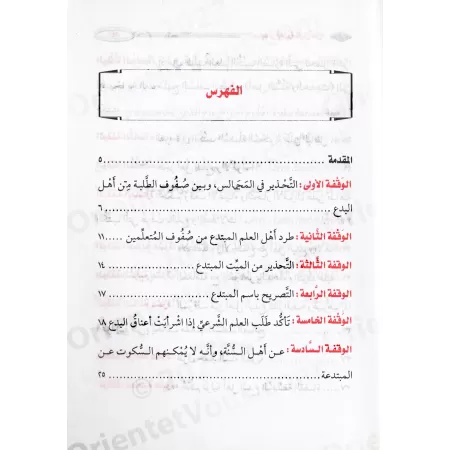 الفهرس
المقدمة ............................................................ ٥
الوقفة الأولى: التَّحْذير في المَجَالس، وبين صُفُوف الطَّلبة مِنْ أَهْل
البدع ............................................................ ٦
الوقفة الثَّانية: طرد أَهْل العلم المبتدع من صُفُوف المُتعلِّمين ..... ١١
الوقفة الثَّالثة: التَّحذير من الميِّت المبتدع ............................ ١٤
الوقفة الرَّابعة: التَّصريح باسم المبتدع ............................ ١٧
الوقفة الخامسة: تأكُّد طَلَب العلم الشَّرعيِّ إذا اشرأبَّتْ أعناق البدع ١٨
الوقفة السَّادسة: عن أَهْل السُّنَّة، وأنَّه لا يُمْكنهم السُّكوت عن
المبتدعة ............................................................ ٢٥
OrientetVous